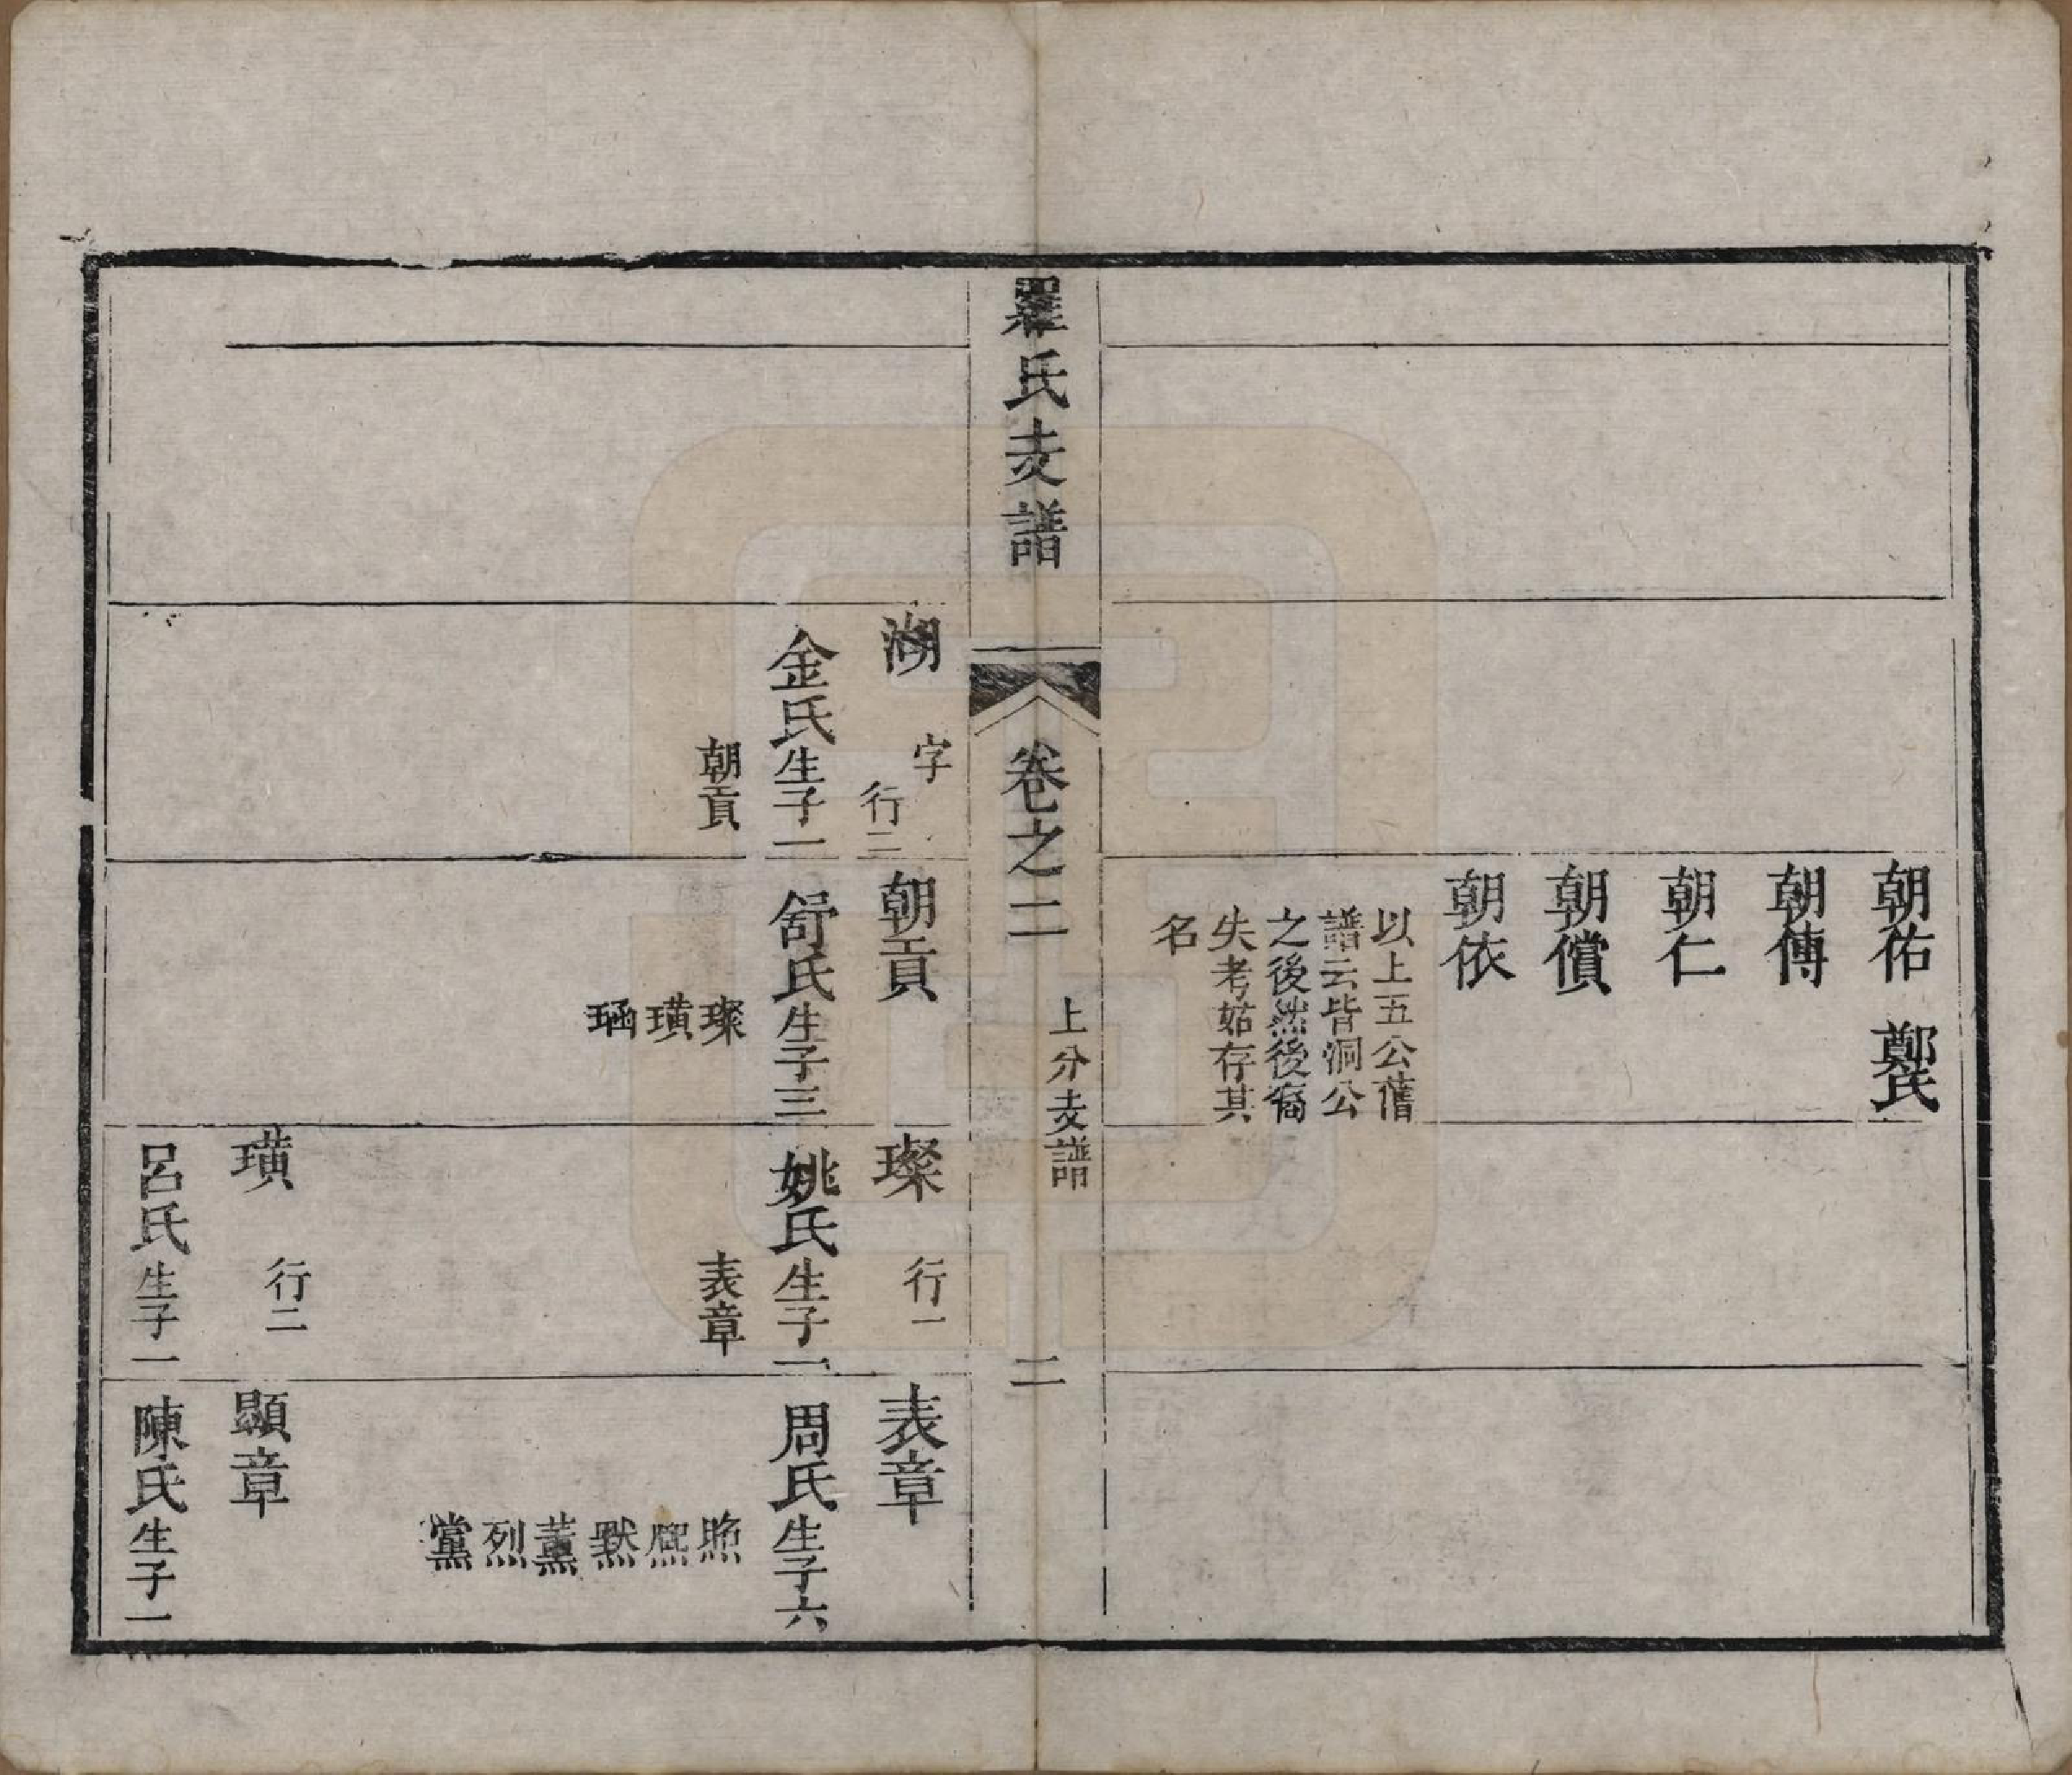 朝佑 鄭氏
朝傳
朝仁
朝償
朝依
以上五公舊
譜云皆洞公
之後然後裔
失考姑存其
名
羅氏支譜
卷之二
上分支譜
二
湖 字
行二
金氏生子一
朝貢
朝貢
舒氏生子三
璨
璜
璨 行一
姚氏生子一
表章
璜 行二
呂氏生子一
表章
周氏生子六
照
熙
默
薰
烈
黨
顯章
陳氏生子一